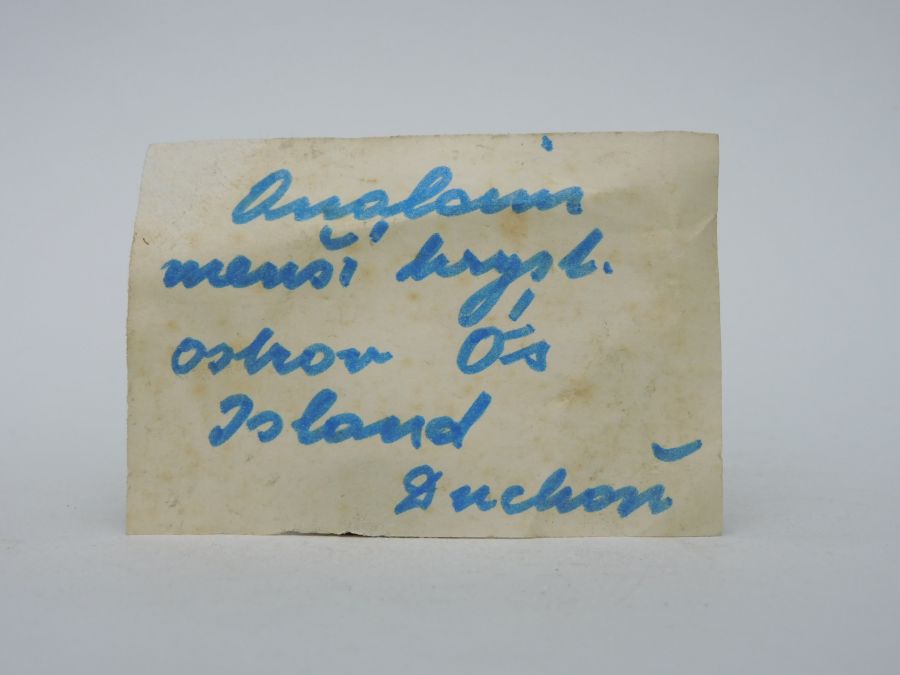 Analcim
menší kryst.
ostrov Ós
Island
Duchoň